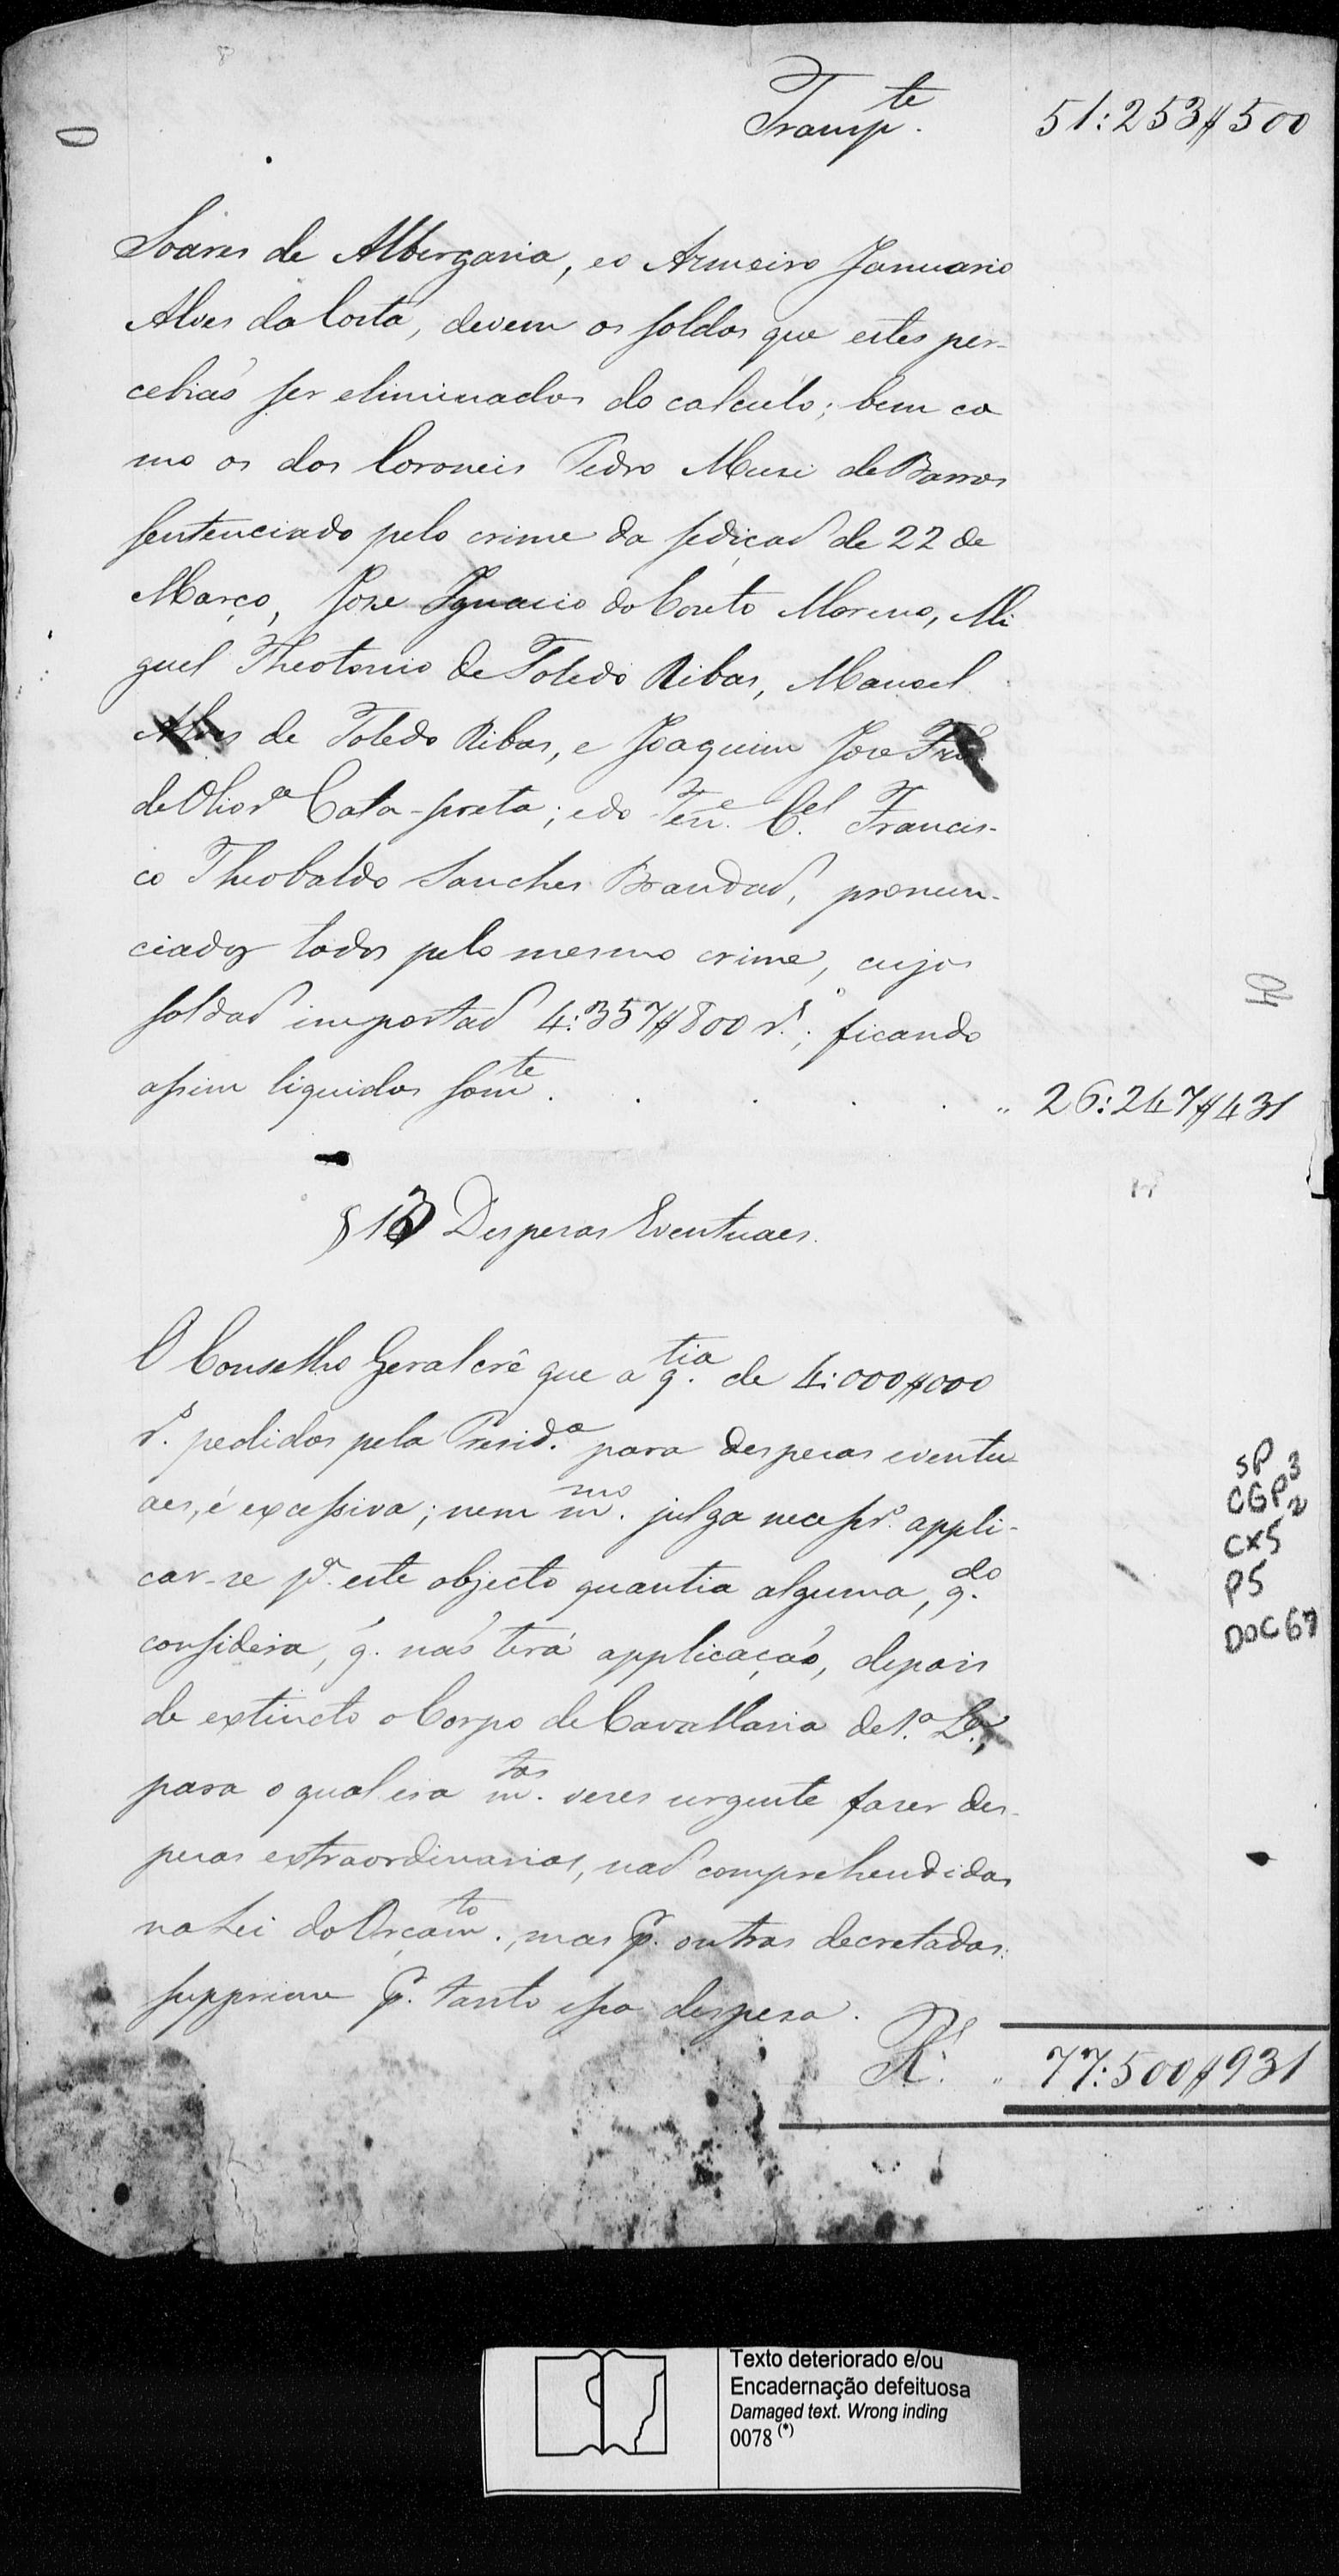 Transp.te 51:253$500
Soares de Albergaria, eo Armeiro Januario
Alves da Costa, devem os soldos que estes per-
cebiaõ ser eliminados do calculo; bem co
mo os dos Coroneis Pedro Muzi de Barros
sentenciado pelo crime da sediçaõ de 22 de
Março, Joze Ignacio do Couto Moreno, Mi
guel Theotonio de Toledo Ribas, Manoel
Alves de Toledo Ribas, e Joaquim Joze
de Olivr.a Cata-preta; edo Ten.e C.el Francis-
co Theobaldo Sanches Brandaõ, pronun-
ciados todos pelo mesmo crime, cujos
soldos importaõ 4:357$800 r.s; ficando
assim liquidos som.te . . . . " 26:247$431
§ 13 Despezas Eventuaes.
O Conselho Geral crê que a q.tia de 4:000$000
r.s pedidos pela Presid.a para despezas eventu
aes, é excessiva; nem m.mo julga necessr.o appli-
car-se p.a este objecto quantia alguma, q.do
considera, q. naõ terá applicaçaõ, depois
de extincto o Corpo de Cavallaria de 1.a L.a,
para o qual era m.tas vezes urgente fazer des-
pezas extraordinarias, naõ comprehendidas
na Lei do Orçam.to, mas p. outras decretadas:
supprime p. tanto essa despeza.
R.s " 77:500$931
SP
CGP3
CX5
P5
DOC 67
Texto deteriorado e/ou
Encadernação defeituosa
Damaged text. Wrong inding
0078 (*)